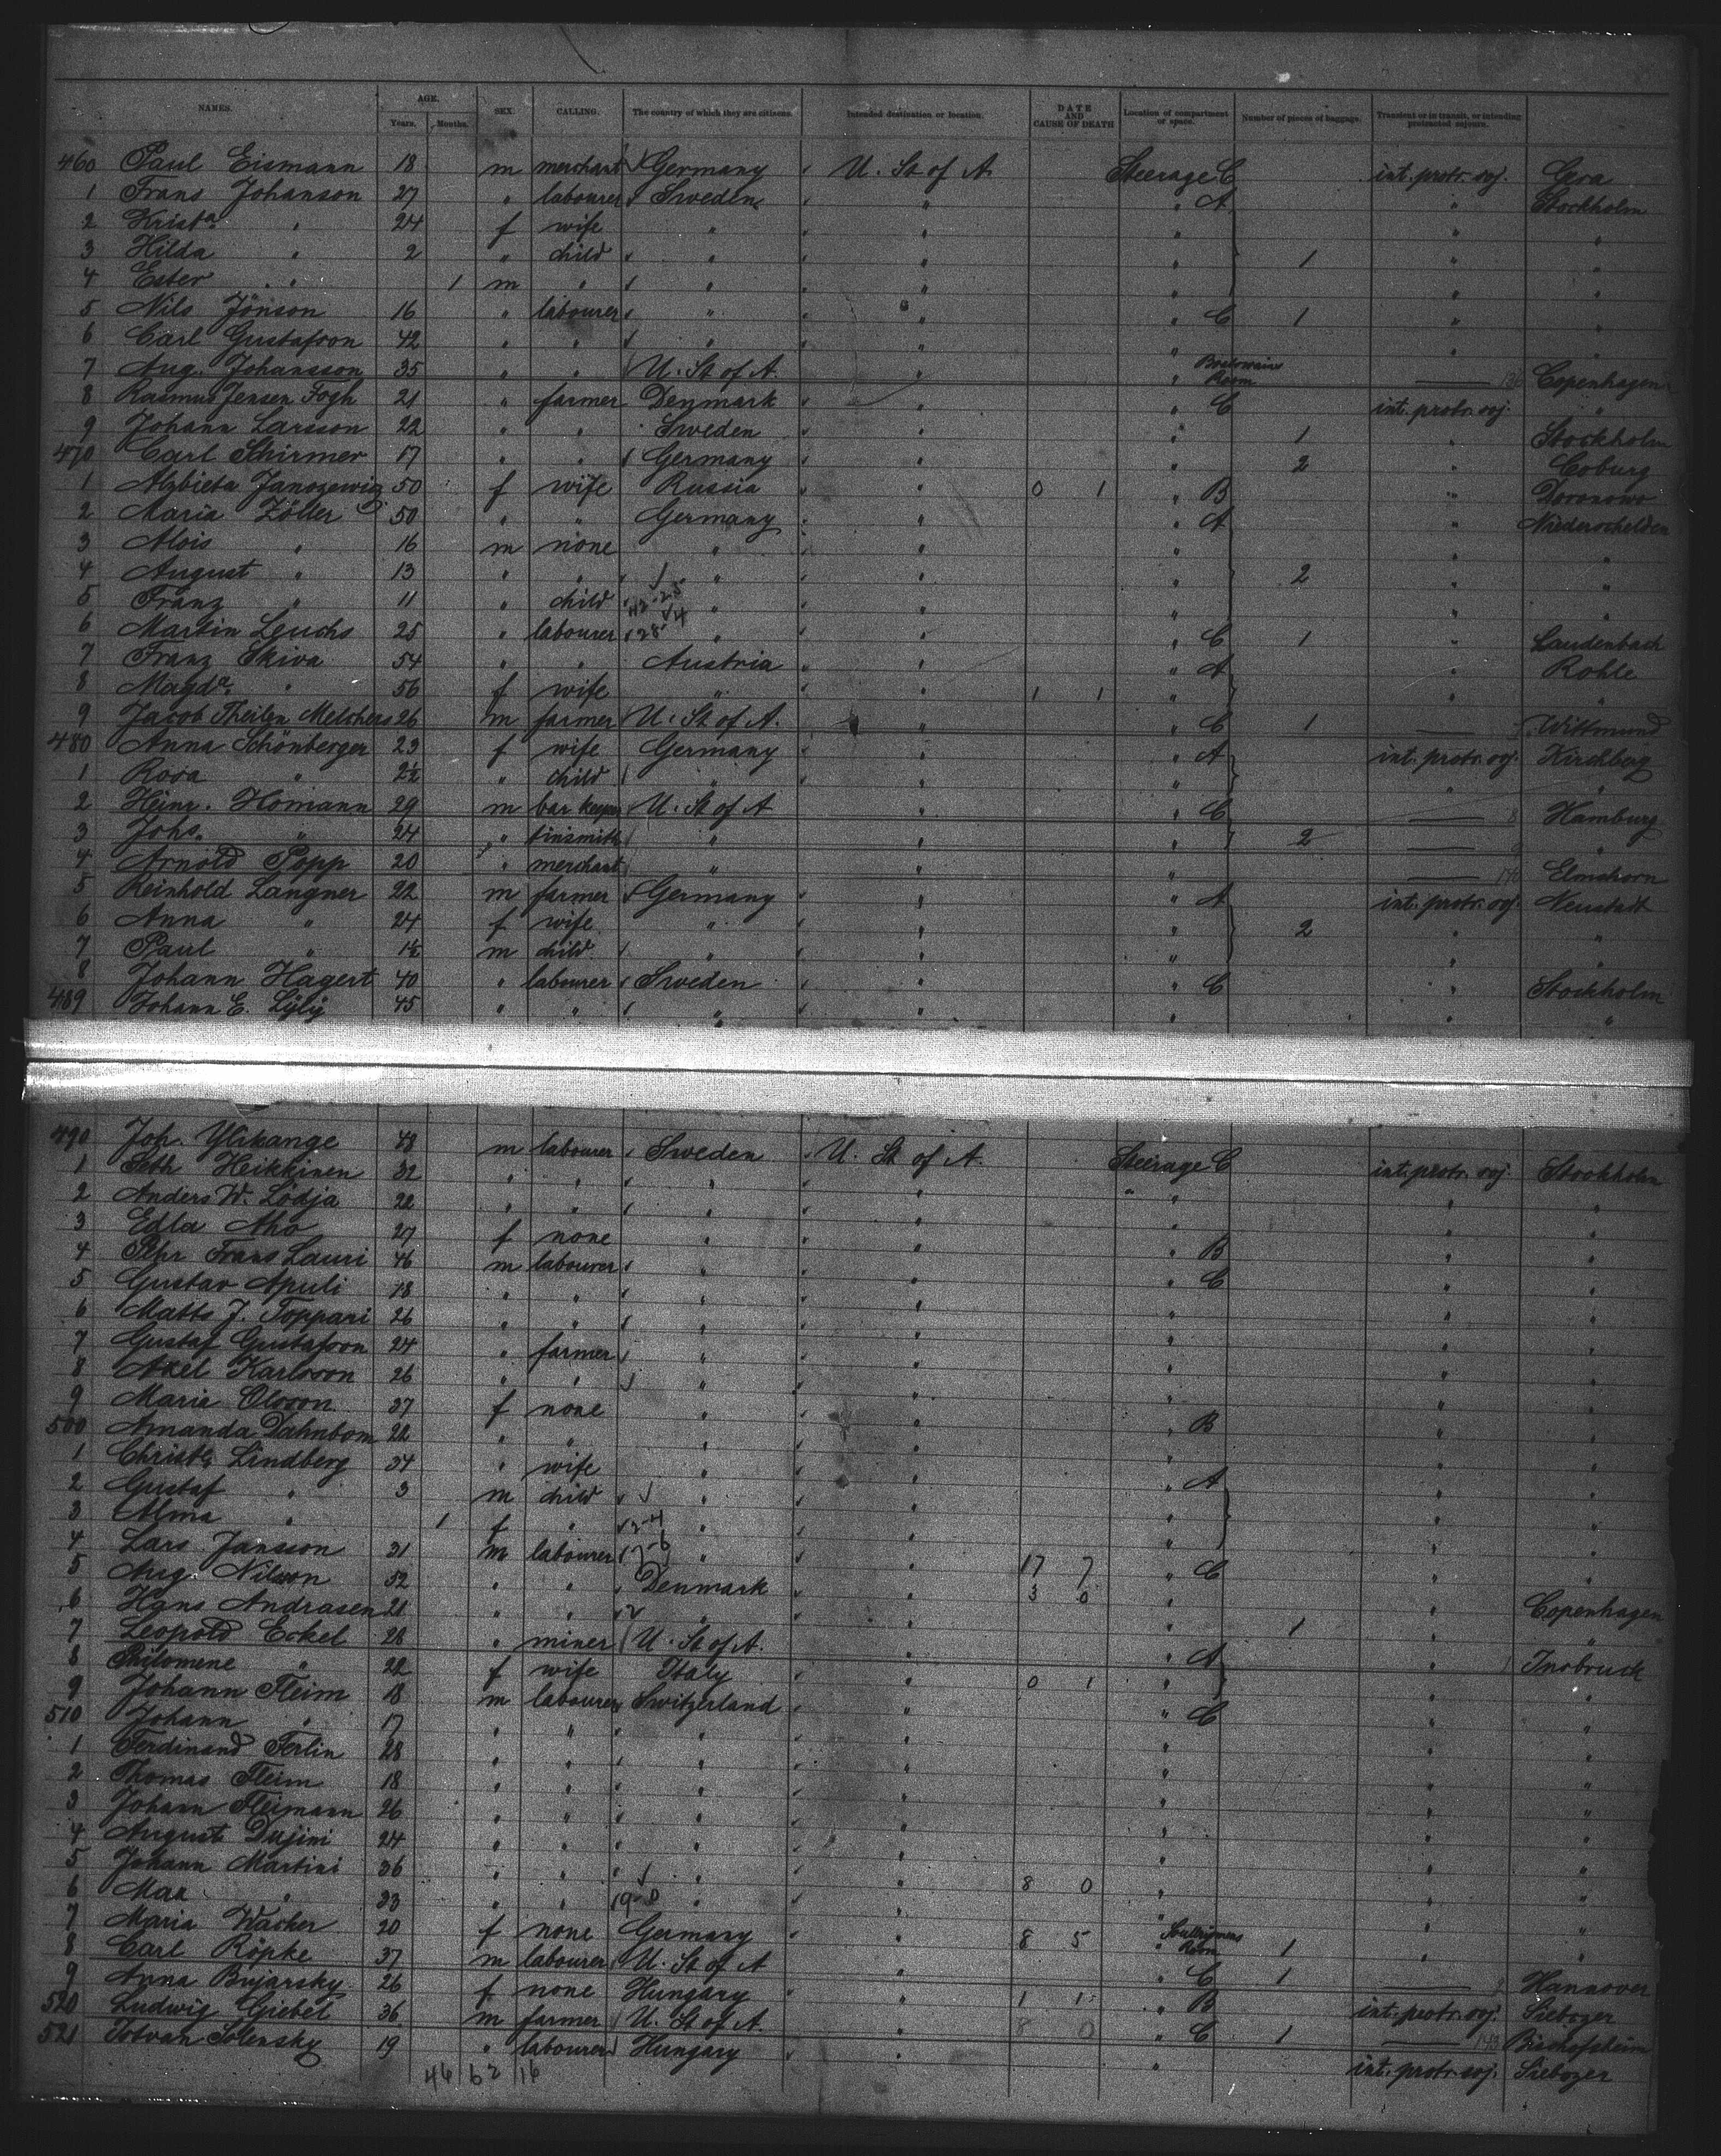 NAMES. AGE. SEX. CALLING. The country of which they are citizens. Intended destination or location. DATE AND CAUSE OF DEATH Location of compartment or space. Number of pieces of baggage. Transient or in transit, or intending protracted sojourn.
Years. Months.
460 Paul Eismann 18 m merchant Germany U. St. of A. Steerage C int. protr. soj. Gera
1 Frans Johanson 27 " labourer Sweden " " A " Stockholm
2 Krista. " 24 f wife " " " " "
3 Hilda " 2 " child " " " 1 " "
4 Ester " 1 m " " " " " "
5 Nils Jönson 16 " labourer " " " C 1 " "
6 Carl Gustafson 42 " " " " " " "
7 Aug. Johansson 35 " " U. St. of A. " " Room — Copenhagen
8 Rasmus Jensen Fogh 21 " farmer Denmark " " C int. protr. soj. "
9 Johann Larsson 22 " " Sweden " " 1 " Stockholm
470 Carl Schirmer 17 " " Germany " " 2 " Coburg
1 Alzbieta 50 f wife Russia " 0 1 " B "
2 Maria Zöller 50 " " Germany " " A " Niederschelden
3 Alois " 16 m none " " " " "
4 August " 13 " " " " " 2 " "
5 Franz " 11 " child " " " " "
6 Martin Leuchs 25 " labourer " " " C 1 " Laudenbach
7 Franz Skiva 54 " " Austria " " A " Rohle
8 Magda. " 56 f wife " " 1 1 " " "
9 Jacob Theilen Melchers 26 m farmer U. St. of A. " " C 1 — Wittmund
480 Anna Schönberger 23 f wife Germany " " A int. protr. soj. Kirchberg
1 Rosa " 2½ " child " " " " "
2 Heinr. Homann 29 m bar keeper U. St. of A " " C — 8 Hamburg
3 Johs. " 24 " tinsmith " " " 2 — "
4 Arnold Popp 20 " merchant " " " — Elmshorn
5 Reinhold Langner 22 m farmer Germany " " A int. protr. soj. Neustadt
6 Anna " 24 f wife " " " 2 " "
7 Paul " 1½ m child " " " " "
8 Johann Hagert 40 " labourer Sweden " " C " Stockholm
489 Johann E. Lÿlÿ 45 " " " " " " "
490 Joh. Ylikange 48 m labourer Sweden U. St. of A. Steerage C int. protr. soj. Stockholm
1 Seth Heikkinen 32 " " " " " " " "
2 Anders W. Lödja 22 " " " " " " "
3 Edla Aho 27 f none " " " B " "
4 Pehr Frans Lauri 46 m labourer " " " C " "
5 Gustav Apuli 18 " " " " " " "
6 Matts J. Toppari 26 " " " " " " "
7 Gustaf Gustafson 24 " farmer " " " " "
8 Axel Karlsson 26 " " " " " " "
9 Maria Olsson 37 f none " " " B " "
500 Amanda Dahnbom 22 " " " " " " "
1 Christa. Lindberg 34 " wife " " " A " "
2 Gustaf " 3 m child " " " " "
3 Alma " 1 f " " " " " "
4 Lars Jansson 31 m labourer " " 17 7 " C " "
5 Aug. Nilsson 52 " " Denmark " 3 0 " " Copenhagen
6 Hans Andrasen 21 " " " " " 1 " "
7 Leopold Eckel 28 " miner U. St. of A. " " A " Insbruck
8 Philomene " 22 f wife Italy " 0 1 " " "
9 Johann Fleim 18 m labourer Switzerland " " C " "
510 Johann " 17 " " " " " " "
1 Ferdinand Ferlin 28 " " " " " " "
2 Thomas Fleim 18 " " " " " " "
3 Johann Fleimann 26 " " " " " " "
4 August Dujini 24 " " " " " " "
5 Johann Martini 36 " " " " 8 0 " " "
6 Max " 33 " " " " " " "
7 Maria Wacher 20 f none Germany " 8 5 " Room 1 " "
8 Carl Röpke 37 m labourer U. St. of A " " C 1 — Hannover
9 Anna Bujarsky 26 f none Hungary " 1 1 " B int. protr. soj.
520 Ludwig Giebel 36 m farmer U. St. of A. " 8 0 " C 1 — Bischofsheim
521 Istvan Solensky 19 " labourer Hungary " " int. protr. soj.
46 62 16